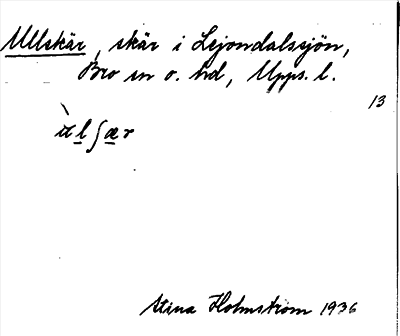 Ullskär, skär i Lejondalssjön,
Bro sn o. hd, Upps. l.
13
ùlʃær
Stina Holmström 1936